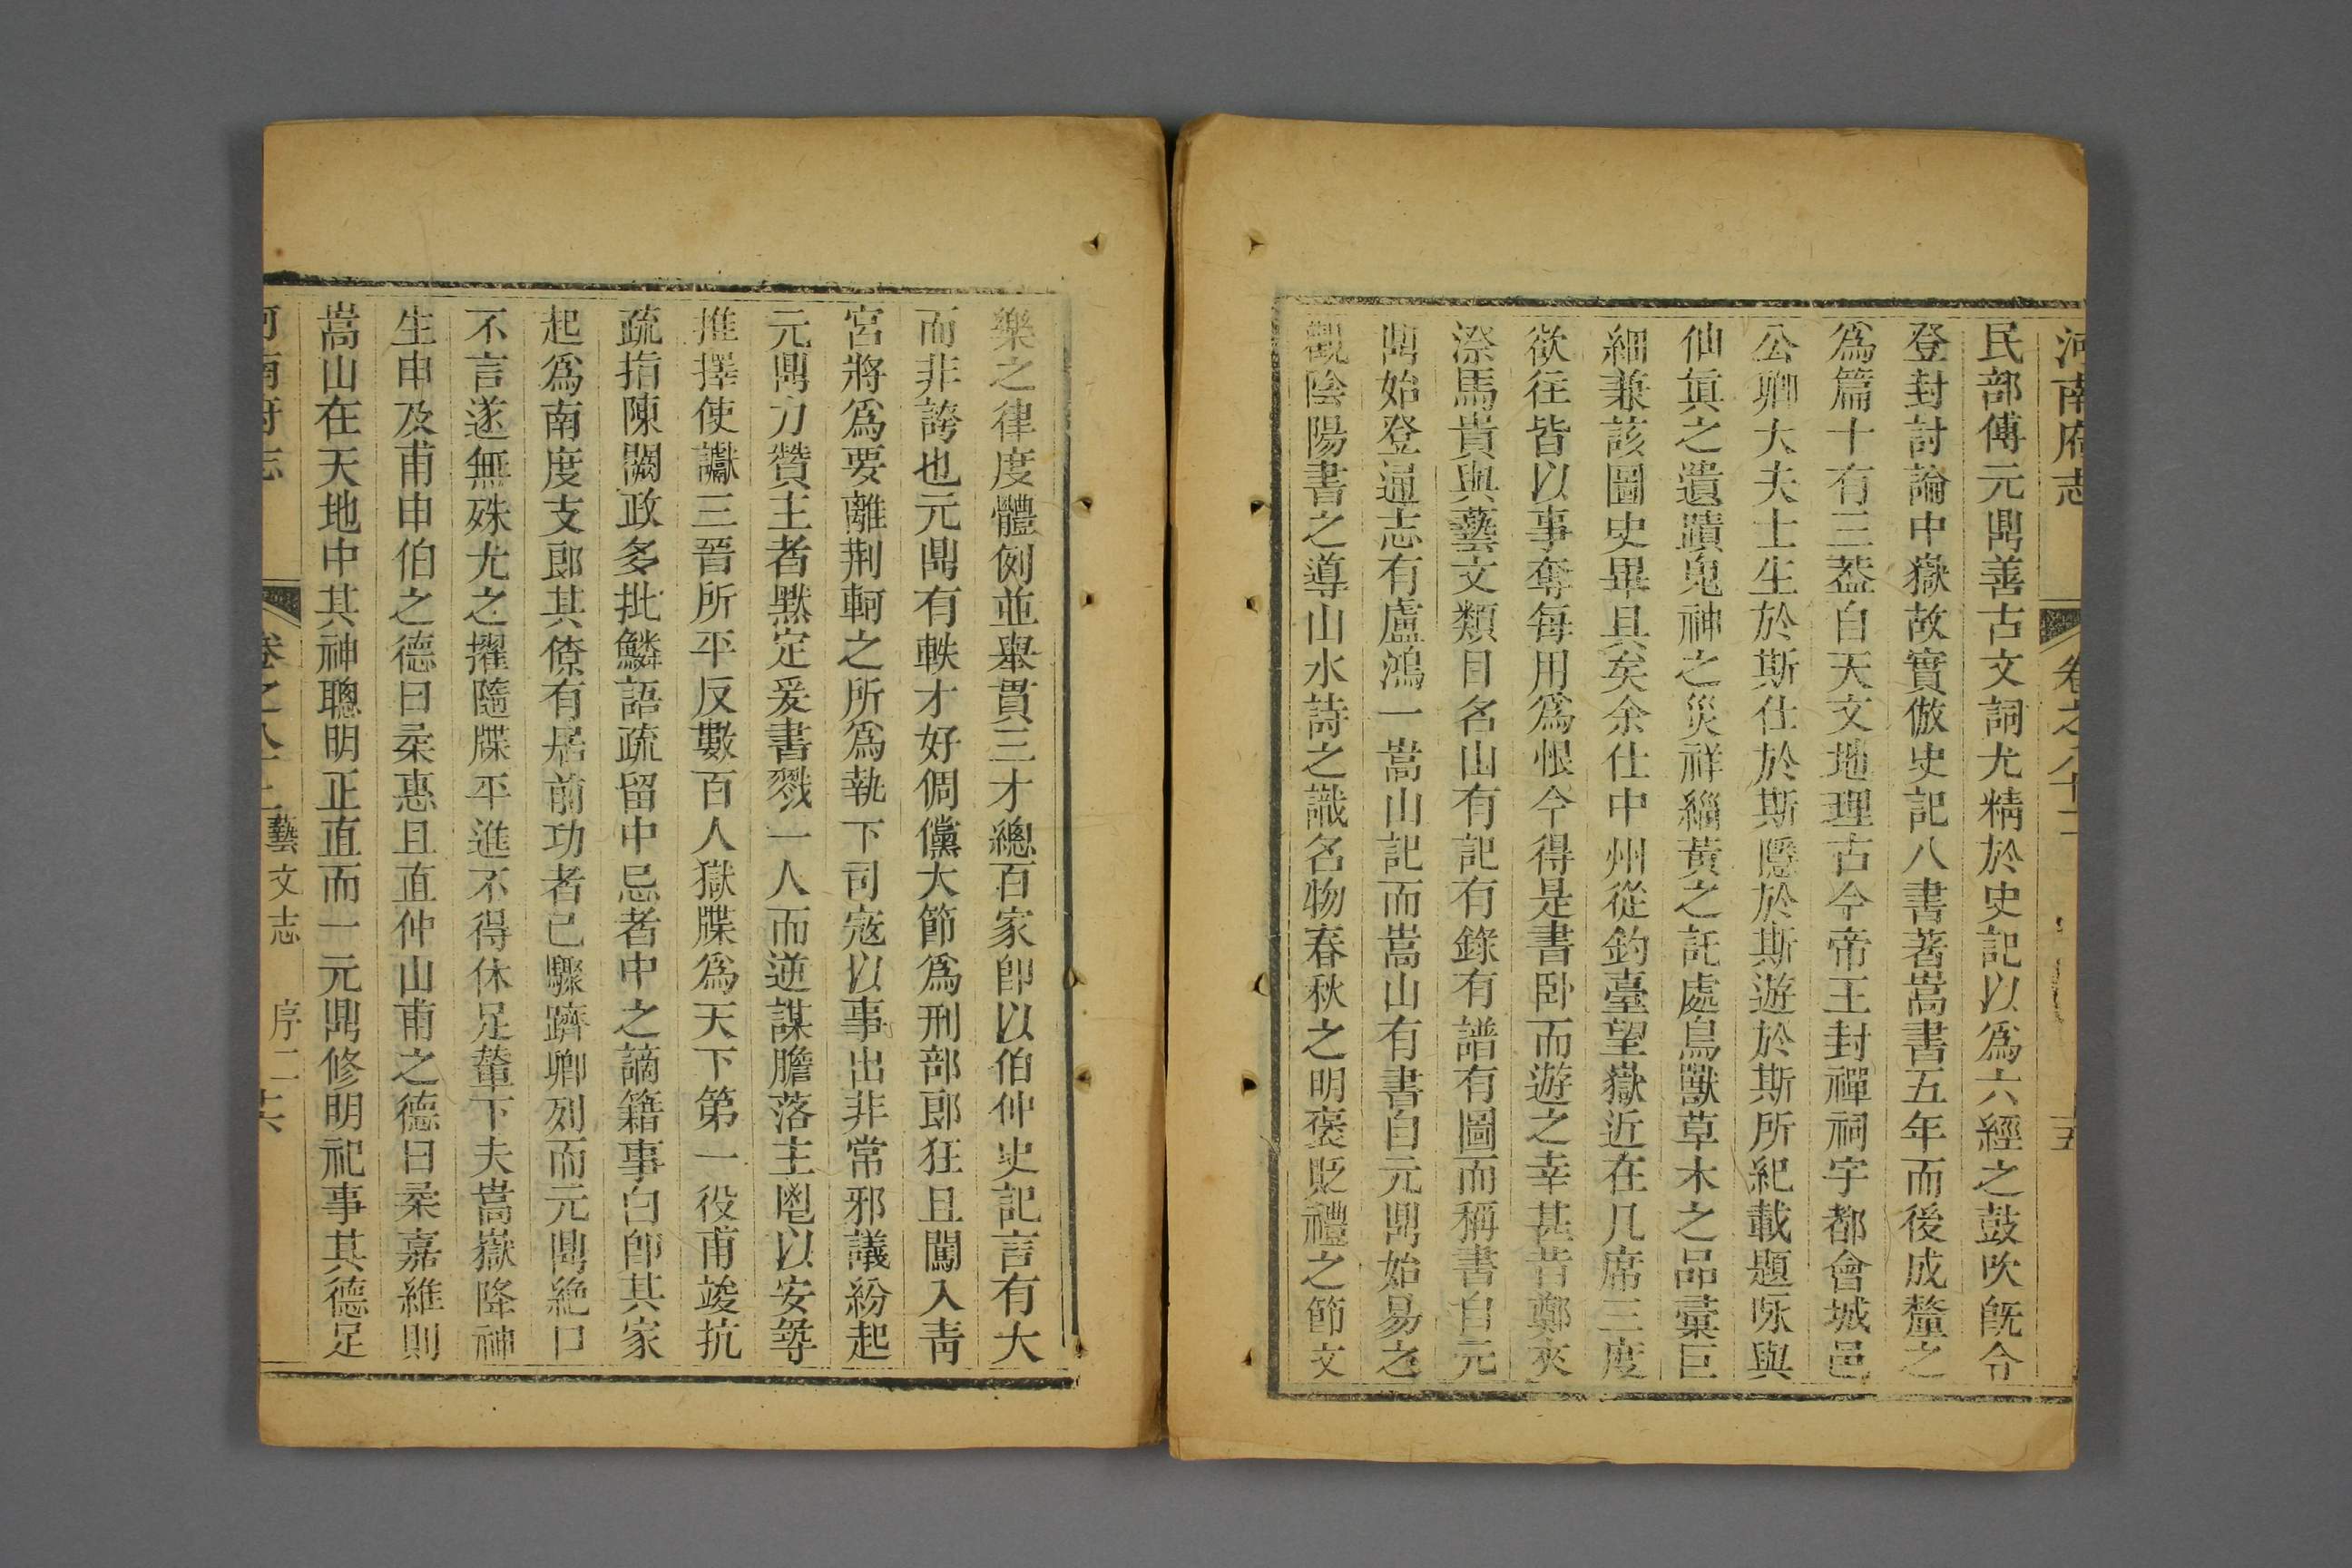 河南府志 卷之八十二 十五
民部傅元鼎善古文詞尤精於史記以爲六經之鼓吹旣令
登封討論中嶽故實倣史記八書著嵩書五年而後成釐之
爲篇十有三蓋自天文地理古今帝王封禪祠宇都會城邑
公卿大夫士生於斯仕於斯隱於斯遊於斯所紀載題咏與
仙眞之遺蹟鬼神之災祥緇黃之託處鳥獸草木之品彙巨
細兼該圖史畢具矣余仕中州從釣臺望嶽近在几席三度
欲往皆以事奪每用爲恨今得是書卧而遊之幸甚昔鄭夾
漈馬貴與藝文類目名山有記有錄有譜有圖而稱書自元
鼎始登通志有盧鴻一嵩山記而嵩山有書自元鼎始易之
觀陰陽書之導山水詩之識名物春秋之明褒貶禮之節文
樂之律度體例並舉貫三才總百家卽以伯仲史記言有大
而非誇也元鼎有軼才好倜儻大節爲刑部郎狂且闖入靑
宮將爲要離荆軻之所爲執下司寇以事出非常邪議紛起
元鼎力贊主者默定爰書戮一人而逆謀膽落主鬯以安尋
推擇使讞三晉所平反數百人獄牒爲天下第一役甫竣抗
疏指陳闕政多批鱗語疏留中忌者中之謫籍事白卽其家
起爲南度支郎其僚有居前功者已驟躋卿列而元鼎絶口
不言遂無殊尤之擢隨牒平進不得休足輦下夫嵩嶽降神
生申及甫申伯之德曰柔惠且直仲山甫之德曰柔嘉維則
嵩山在天地中其神聰明正直而一元鼎修明祀事其德足
河南府志 卷之八十二 藝文志 序二 十六